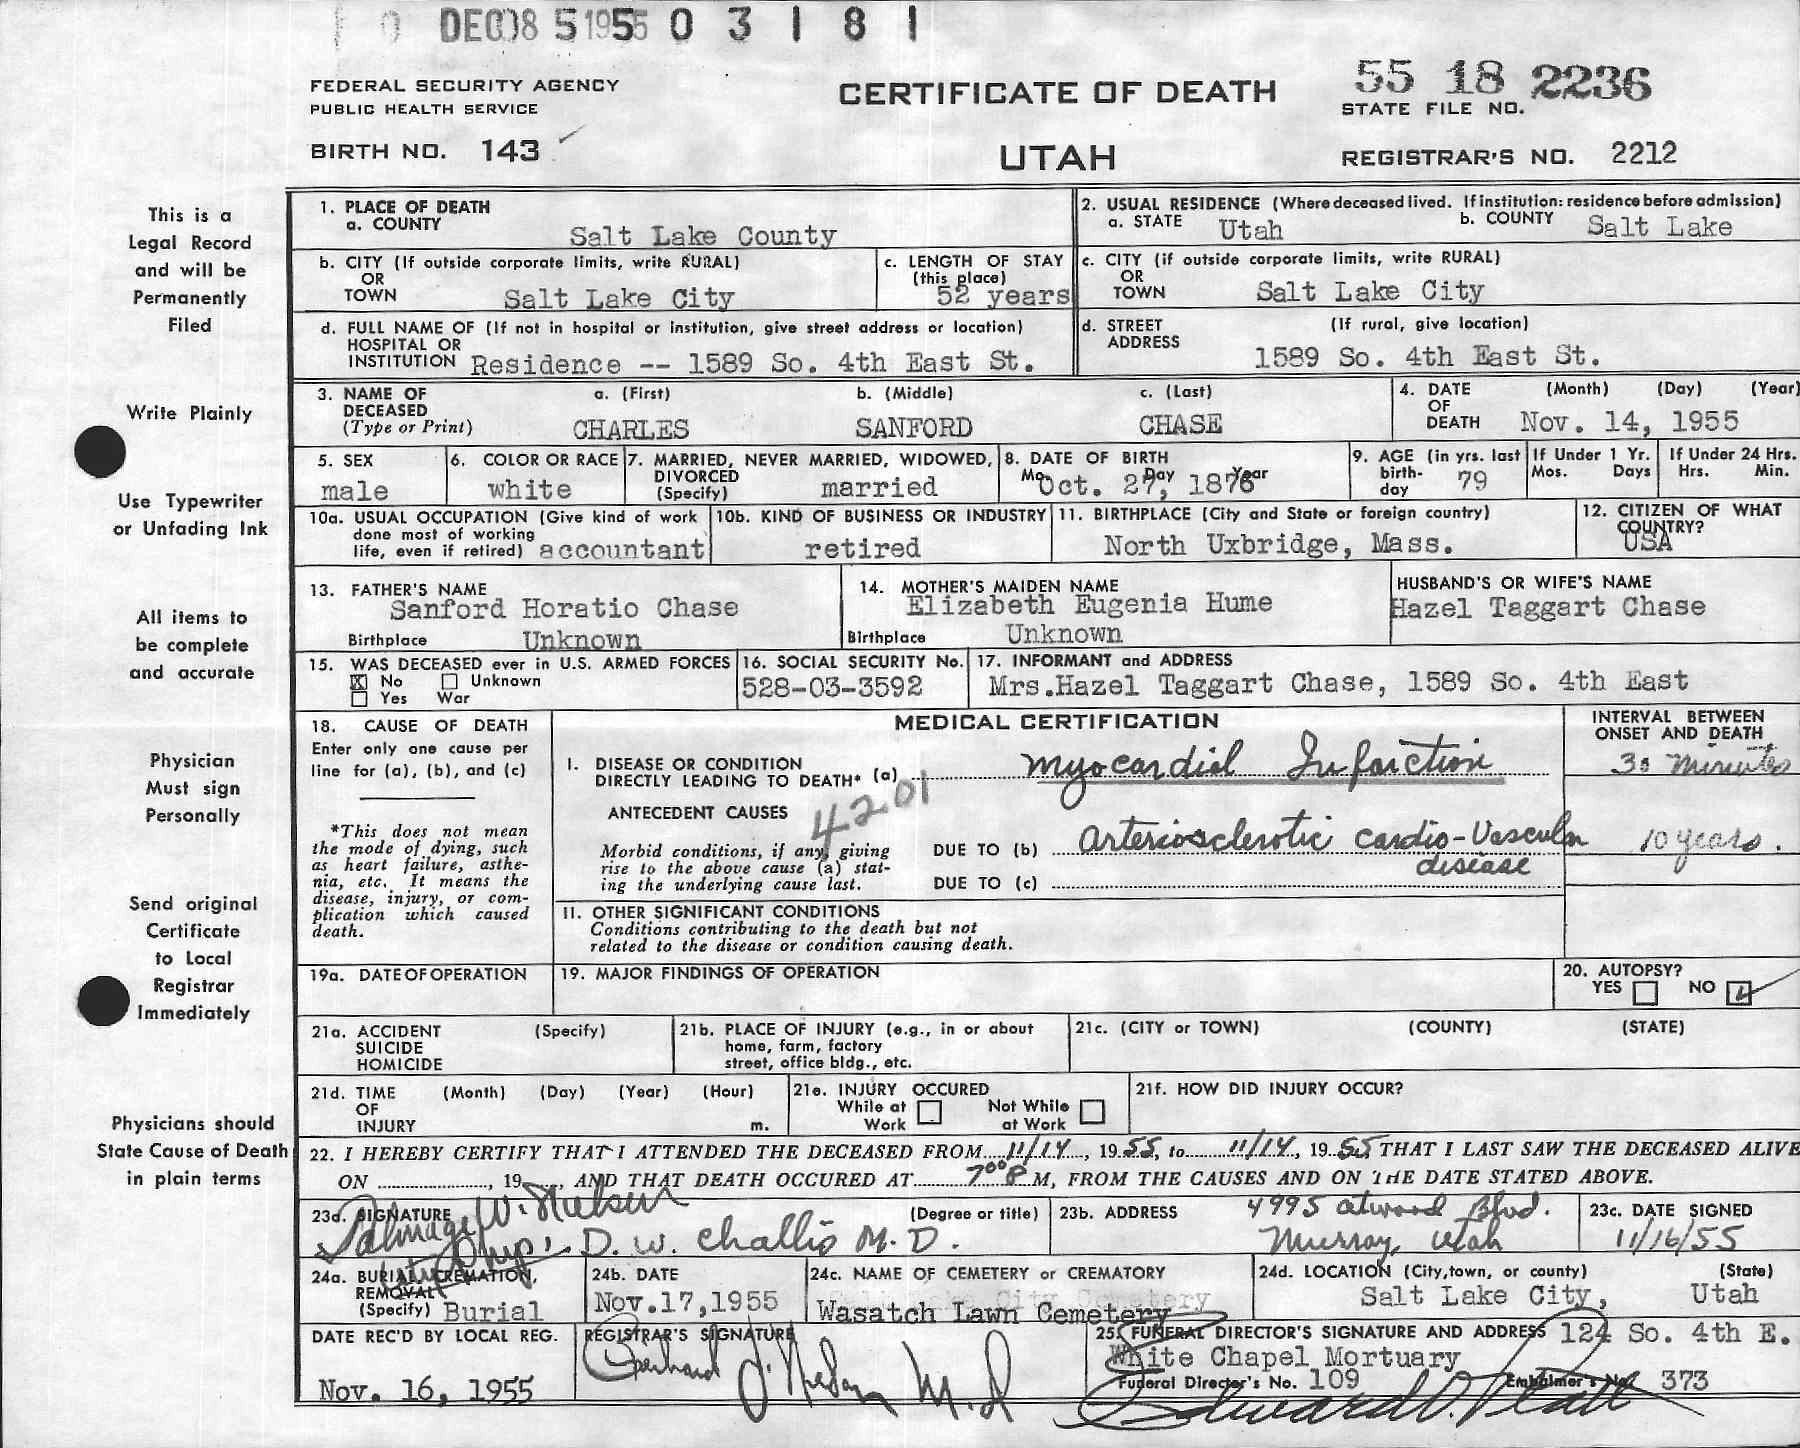 DEC 8 5 1955 0 3 1 8 1
FEDERAL SECURITY AGENCY
PUBLIC HEALTH SERVICE
CERTIFICATE OF DEATH
55 18 2236
STATE FILE NO.
BIRTH NO. 143
UTAH
REGISTRAR'S NO. 2212
This is a
Legal Record
and will be
Permanently
Filed
Write Plainly
Use Typewriter
or Unfading Ink
All items to
be complete
and accurate
Physician
Must sign
Personally
Send original
Certificate
to Local
Registrar
Immediately
Physicians should
State Cause of Death
in plain terms
1. PLACE OF DEATH
a. COUNTY Salt Lake County
2. USUAL RESIDENCE (Where deceased lived. If institution: residence before admission)
a. STATE Utah b. COUNTY Salt Lake
b. CITY (If outside corporate limits, write RURAL)
OR
TOWN Salt Lake City
c. LENGTH OF STAY
(this place)
52 years
c. CITY (if outside corporate limits, write RURAL)
OR
TOWN Salt Lake City
d. FULL NAME OF (If not in hospital or institution, give street address or location)
HOSPITAL OR
INSTITUTION Residence -- 1589 So. 4th East St.
d. STREET (If rural, give location)
ADDRESS 1589 So. 4th East St.
3. NAME OF a. (First) b. (Middle) c. (Last)
DECEASED
(Type or Print) CHARLES SANFORD CHASE
4. DATE (Month) (Day) (Year)
OF
DEATH Nov. 14, 1955
5. SEX
male
6. COLOR OR RACE
white
7. MARRIED, NEVER MARRIED, WIDOWED,
DIVORCED
(Specify) married
8. DATE OF BIRTH
Mo. Day Year
Oct. 27, 1876
9. AGE (in yrs. last
birth-
day 79
If Under 1 Yr.
Mos. Days
If Under 24 Hrs.
Hrs. Min.
10a. USUAL OCCUPATION (Give kind of work
done most of working
life, even if retired) accountant
10b. KIND OF BUSINESS OR INDUSTRY
retired
11. BIRTHPLACE (City and State or foreign country)
North Uxbridge, Mass.
12. CITIZEN OF WHAT
COUNTRY?
USA
13. FATHER'S NAME
Sanford Horatio Chase
Birthplace Unknown
14. MOTHER'S MAIDEN NAME
Elizabeth Eugenia Hume
Birthplace Unknown
HUSBAND'S OR WIFE'S NAME
Hazel Taggart Chase
15. WAS DECEASED ever in U.S. ARMED FORCES
X No Unknown
Yes War
16. SOCIAL SECURITY No.
528-03-3592
17. INFORMANT and ADDRESS
Mrs.Hazel Taggart Chase, 1589 So. 4th East
18. CAUSE OF DEATH
Enter only one cause per
line for (a), (b), and (c)
*This does not mean
the mode of dying, such
as heart failure, asthe-
nia, etc. It means the
disease, injury, or com-
plication which caused
death.
MEDICAL CERTIFICATION
INTERVAL BETWEEN
ONSET AND DEATH
I. DISEASE OR CONDITION
DIRECTLY LEADING TO DEATH* (a) Myocardial Infarction 30 Minutes
4201
ANTECEDENT CAUSES
Morbid conditions, if any, giving
rise to the above cause (a) stat-
ing the underlying cause last.
DUE TO (b) Arteriosclerotic Cardio-Vascular disease 10 years.
DUE TO (c)
II. OTHER SIGNIFICANT CONDITIONS
Conditions contributing to the death but not
related to the disease or condition causing death.
19a. DATE OF OPERATION
19. MAJOR FINDINGS OF OPERATION
20. AUTOPSY?
YES NO
21a. ACCIDENT (Specify)
SUICIDE
HOMICIDE
21b. PLACE OF INJURY (e.g., in or about
home, farm, factory
street, office bldg., etc.
21c. (CITY or TOWN) (COUNTY) (STATE)
21d. TIME (Month) (Day) (Year) (Hour)
OF
INJURY m.
21e. INJURY OCCURED
While at Work Not While at Work
21f. HOW DID INJURY OCCUR?
22. I HEREBY CERTIFY THAT I ATTENDED THE DECEASED FROM 11/14, 1955, to 11/14, 1955 THAT I LAST SAW THE DECEASED ALIVE
ON , 19 , AND THAT DEATH OCCURED AT 7:00 P M, FROM THE CAUSES AND ON THE DATE STATED ABOVE.
23a. SIGNATURE (Degree or title)
Talmage W. Nielsen
D. W. Challis M.D.
23b. ADDRESS 4995 Atwood Blvd.
Murray, Utah
23c. DATE SIGNED
11/16/55
24a. BURIAL, CREMATION,
REMOVAL
(Specify) Burial
24b. DATE
Nov.17,1955
24c. NAME OF CEMETERY or CREMATORY
Wasatch Lawn Cemetery
24d. LOCATION (City, town, or county) (State)
Salt Lake City, Utah
DATE REC'D BY LOCAL REG.
Nov. 16, 1955
REGISTRAR'S SIGNATURE
M.D
25. FUNERAL DIRECTOR'S SIGNATURE AND ADDRESS 124 So. 4th E.
White Chapel Mortuary
Funeral Director's No. 109 Embalmer's No. 373